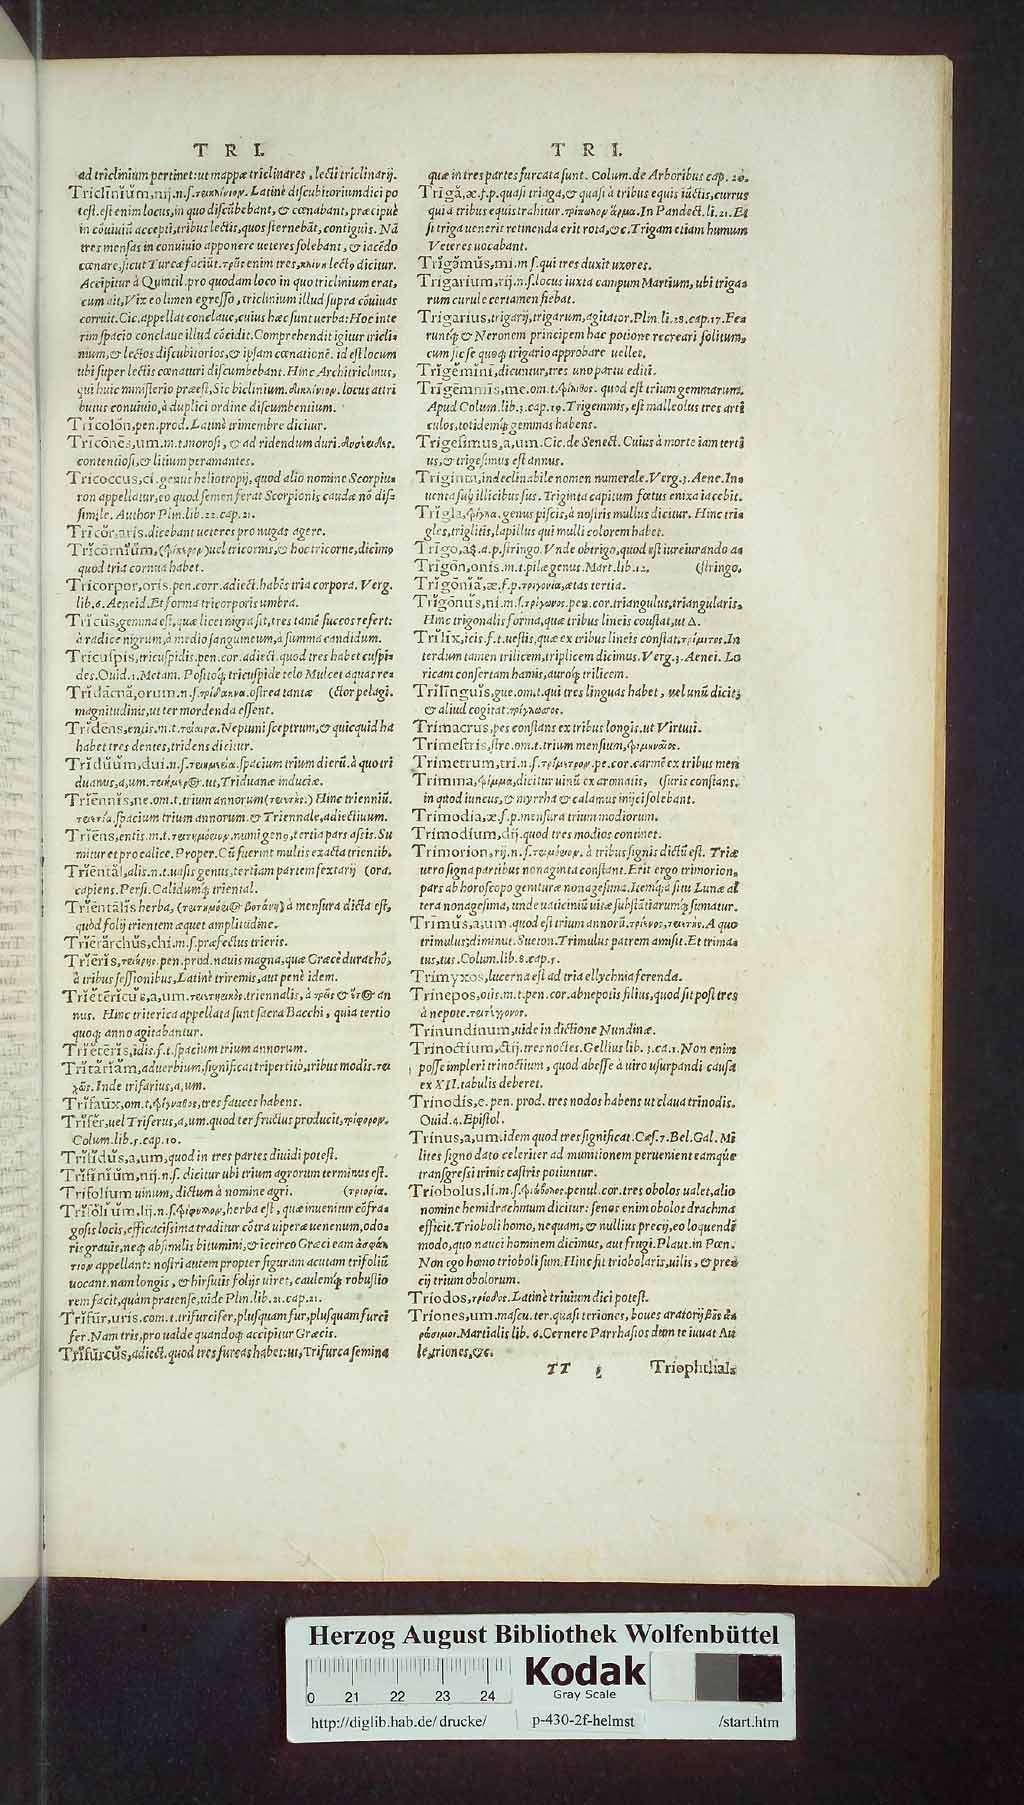 T R I.
ad triclinium pertinet: ut mappæ triclinares, lecti triclinarij.
Triclinium, nij. n. ſ. Latinè diſcubitorium dici po
teſt. eſt enim locus, in quo diſcūbebant, & cœnabant, præcipuè
in cōuiuiū accepti, tribus lectis, quos ſternebāt, contiguis. Nā
tres menſas in conuiuio apponere ueteres ſolebant, & iacēdo
cœnare, ſicut Turcæ faciūt. enim tres, κλίνη lectꝰ dicitur.
Accipitur à Quintil. pro quodam loco in quo triclinium erat,
cum ait, Vix eo limen egreſſo, triclinium illud ſupra cōuiuas
corruit. Cic. appellat conclaue, cuius hæc ſunt uerba: Hoc inte
rim ſpacio conclaue illud cōcidit. Comprehendit igitur tricli⸗
nium, & lectos diſcubitorios, & ipſam cœnationē. id eſt locum
ubi ſuper lectis cœnaturi diſcumbebant. Hinc Architriclinus,
qui huic miniſterio præeſt, Sic biclinium. locus attri
butus conuiuio, à duplici ordine diſcumbentium.
Tricolōn, pen. prod. Latinè trimembre dicitur.
Tricōnēs, um. m. t. moroſi, & ad ridendum duri.
contentioſi, & litium peramantes.
Tricoccus, ci. genus heliotropij, quod alio nomine Scorpiu⸗
ron appellatur, eo quod ſemen ferat Scorpionis caudæ nō diſ⸗
ſimile. Author Plin. lib. 22. cap. 21.
Tricŏr, aris. dicebant ueteres pro nugas agere.
Tricōrnium, uel tricornis, & hoc tricorne, dicimꝰ
quod tria cornua habet.
Tricorpor, oris. pen. corr. adiect. habēs tria corpora. Verg.
lib. 6. Aeneid. Et forma tricorporis umbra.
Tricus, gemma eſt, quæ licet nigra ſit, tres tamē ſuccos refert:
à radice nigrum, à medio ſanguineum, à ſumma candidum.
Tricuſpis, tricuſpidis. pen. cor. adiect. quod tres habet cuſpi⸗
des. Ouid. 1. Metam. Poſitoq́; tricuſpide telo Mulcet aquas re⸗
Tridācnā, orum. n. ſ. oſtrea tantæ (ctor pelagi.
magnitudinis, ut ter mordenda eſſent.
Tridens, entis. m. t. Neptuni ſceptrum, & quicquid ha
habet tres dentes, tridens dicitur.
Triduum, dui. n. ſ. ſpacium trium dierū. à quo tri
duanus, a, um. ut, Triduanæ induciæ.
Triēnnis, ne. om. t. trium annorum Hinc trienniū.
ſpacium trium annorum. & Triennale, adiectiuum.
Triēns, entis. m. t. numi genꝰ, tertia pars aſſis. Su
mitur et pro calice. Proper. Cū fuerint multis exacta trientib.
Triēntāl, alis. n. t. uaſis genus, tertiam partem ſextarij (ora.
capiens. Perſi. Calidumq́; triental.
Triēntālis herba, à menſura dicta eſt,
quòd folij trientem æquet amplitudine.
Triērārchus, chi. m. ſ. præfectus trieris.
Triēris, pen. prod. nauis magna, quæ Græcè
à tribus ſeſſionibus, Latinè triremis, aut penè idem.
Trietēricus, a, um. triennalis, à & an
nus. Hinc triterica appellata ſunt ſacra Bacchi, quia tertio
quoq; anno agitabantur.
Trietēris, idis. f. t. ſpacium trium annorum.
Trifāriām, aduerbium, ſignificat tripertitò, tribus modis.
Inde trifarius, a, um.
Trifaux, om. t. tres fauces habens.
Trifēr, uel Triferus, a, um. quod ter fructus producit,
Colum. lib. 5. cap. 10.
Trifidus, a, um, quod in tres partes diuidi poteſt.
Trifinium, nij. n. ſ. dicitur ubi trium agrorum terminus eſt.
Trifolium uinum, dictum à nomine agri.
Trifolium, lij. n. ſ. herba eſt, quæ inuenitur cōfra⸗
goſis locis, efficaciſſima traditur cōtra uiperæ uenenum, odo⸗
ris grauis, neq; abſimilis bitumini, & iccirco Græci eam
appellant: noſtri autem propter figuram acutam trifoliū
uocant. nam longis, & hirſutis folijs uiret, caulemq́; robuſtio
rem facit, quàm pratenſe, uide Plin. lib. 21. cap. 21.
Trifūr, uris. com. t. trifurcifer, pluſquam fur, pluſquam furci
fer. Nam tris, pro ualde quandoq; accipitur Græcis.
Trifūrcus, adiect. quod tres furcas habet: ut, Trifurca ſemina
T R I.
quæ in tres partes furcata ſunt. Colum. de Arboribus cap. 20.
Trigā, æ. f. p. quaſi triaga, & quaſi à tribus equis iūctis, currus
qui à tribus equis trahitur. In Pandect. li. 21. Et
ſi triga uenerit retinenda erit rota, &c. Trigam etiam humum
Veteres uocabant.
Trigāmus, mi. m ſ. qui tres duxit uxores.
Trigarium, rij. n. ſ. locus iuxta campum Martium, ubi triga⸗
rum curule certamen fiebat.
Trigarius, trigarij, trigarum, agitator. Plin. li. 28. cap. 17. Fe⸗
runtq́; & Neronem principem hac potione recreari ſolitum,
cum ſic ſe quoq; trigario approbare uellet.
Trigēmini, dicuntur, tres uno partu editi.
Trigēmmis, me. om. t. quod eſt trium gemmarum.
Apud Colum. lib. 3. cap. 19. Trigemmis, eſt malleolus tres arti
culos, totidemq́; gemmas habens.
Trigeſimus, a, um. Cic. de Senect. Cuius à morte iam terti⸗
us, & trigeſimus eſt annus.
Triginta, indeclinabile nomen numerale. Verg. 3. Aene. In⸗
uenta ſub illicibus ſus. Triginta capitum fœtus enixa iacebit.
Trigla, genus piſcis, à noſtris mullus dicitur. Hinc tri⸗
gles, triglitis, lapillus qui mulli colorem habet.
Trigo, as. a. p. ſtringo. Vnde obtrigo, quod eſt iureiurando aa
Trigōn, onis. m. t. pilæ genus. Mart. lib. 12. (ſtringo.
Trigōniā, æ. f. p. ætas tertia.
Trigōnus, ni. m. ſ. τρίγωνος. pen. cor. triangulus, triangularis.
Hinc trigonalis forma, quæ tribus lineis conſtat, ut Δ.
Trilix, icis. f. t. ueſtis, quæ ex tribus lineis conſtat, In
terdum tamen trilicem, triplicem dicimus. Verg. 3. Aenei. Lo
ricam conſertam hamis, auroq́; trilicem.
Trilinguis, gue. om. t. qui tres linguas habet, uel unū dicit,
& aliud cogitat.
Trimacrus, pes conſtans ex tribus longis. ut Virtuti.
Trimeſtris, ſtre. om. t. trium menſium,
Trimetrum, tri. n. ſ. pe. cor. carmē ex tribus men
Trimma, dicitur uinū ex aromatis, (ſuris conſtans.
in quod iuncus, & myrrha & calamus inijci ſolebant.
Trimodia, æ. f. p. menſura trium modiorum.
Trimodium, dij. quod tres modios continet.
Trimorion, rij. n. ſ. à tribus ſignis dictū eſt. Triæ
uero ſigna partibus nonaginta conſtant. Erit ergo trimorion,
pars ab horoſcopo genituræ nonageſima. Itemq́; à ſitu Lunæ al
tera nonageſima, unde uaticiniū uitæ ſubſtātiarumq́; ſumatur.
Trīmus, a, um. quod eſt trium annorū. A quo
trimulus, diminut. Sueton. Trimulus patrem amiſit. Et trima⸗
tus, tus. Colum. lib. 8. cap. 5.
Trimyxos, lucerna eſt ad tria ellychnia ferenda.
Trinepos, otis. m. t. pen. cor. abnepotis filius, quod ſit poſt tres
à nepote.
Trinundinum, uide in dictione Nundinæ.
Trinoctium, ctij. tres noctes. Gellius lib. 3. ca. 1. Non enim
poſſe impleri trinoctium, quod abeſſe à uiro uſurpandi cauſa
ex XII. tabulis deberet.
Trinodis, e. pen. prod. tres nodos habens ut claua trinodis.
Ouid. 4. Epiſtol.
Trinus, a, um. idem quod tres ſignificat. Cæſ. 7. Bel. Gal. Mi
lites ſigno dato celeriter ad munitionem perueniunt eamque
tranſgreſſi trinis caſtris potiuntur.
Triobolus, li. m. ſ. penul. cor. tres obolos ualet, alio
nomine hemidrachmum dicitur: ſenos enim obolos drachma
efficit. Trioboli homo, nequam, & nullius precij, eo loquendi
modo, quo nauci hominem dicimus, aut frugi. Plaut. in Pœn.
Non ego homo trioboli ſum. Hinc fit triobolaris, uilis, & pre⸗
cij trium obolorum.
Triodos, τρίοδος. Latinè triuium dici poteſt.
Triones, um. maſcu. ter. quaſi teriones, boues aratorij
Martialis lib. 6. Cernere Parrhaſios dum te iuuat Au
le, triones, &c.
TT Triophthal⸗
Herzog August Bibliothek Wolfenbüttel
0 21 22 23 24
Kodak
Gray Scale
http://diglib.hab.de/drucke/ p-430-2f-helmst /start.htm